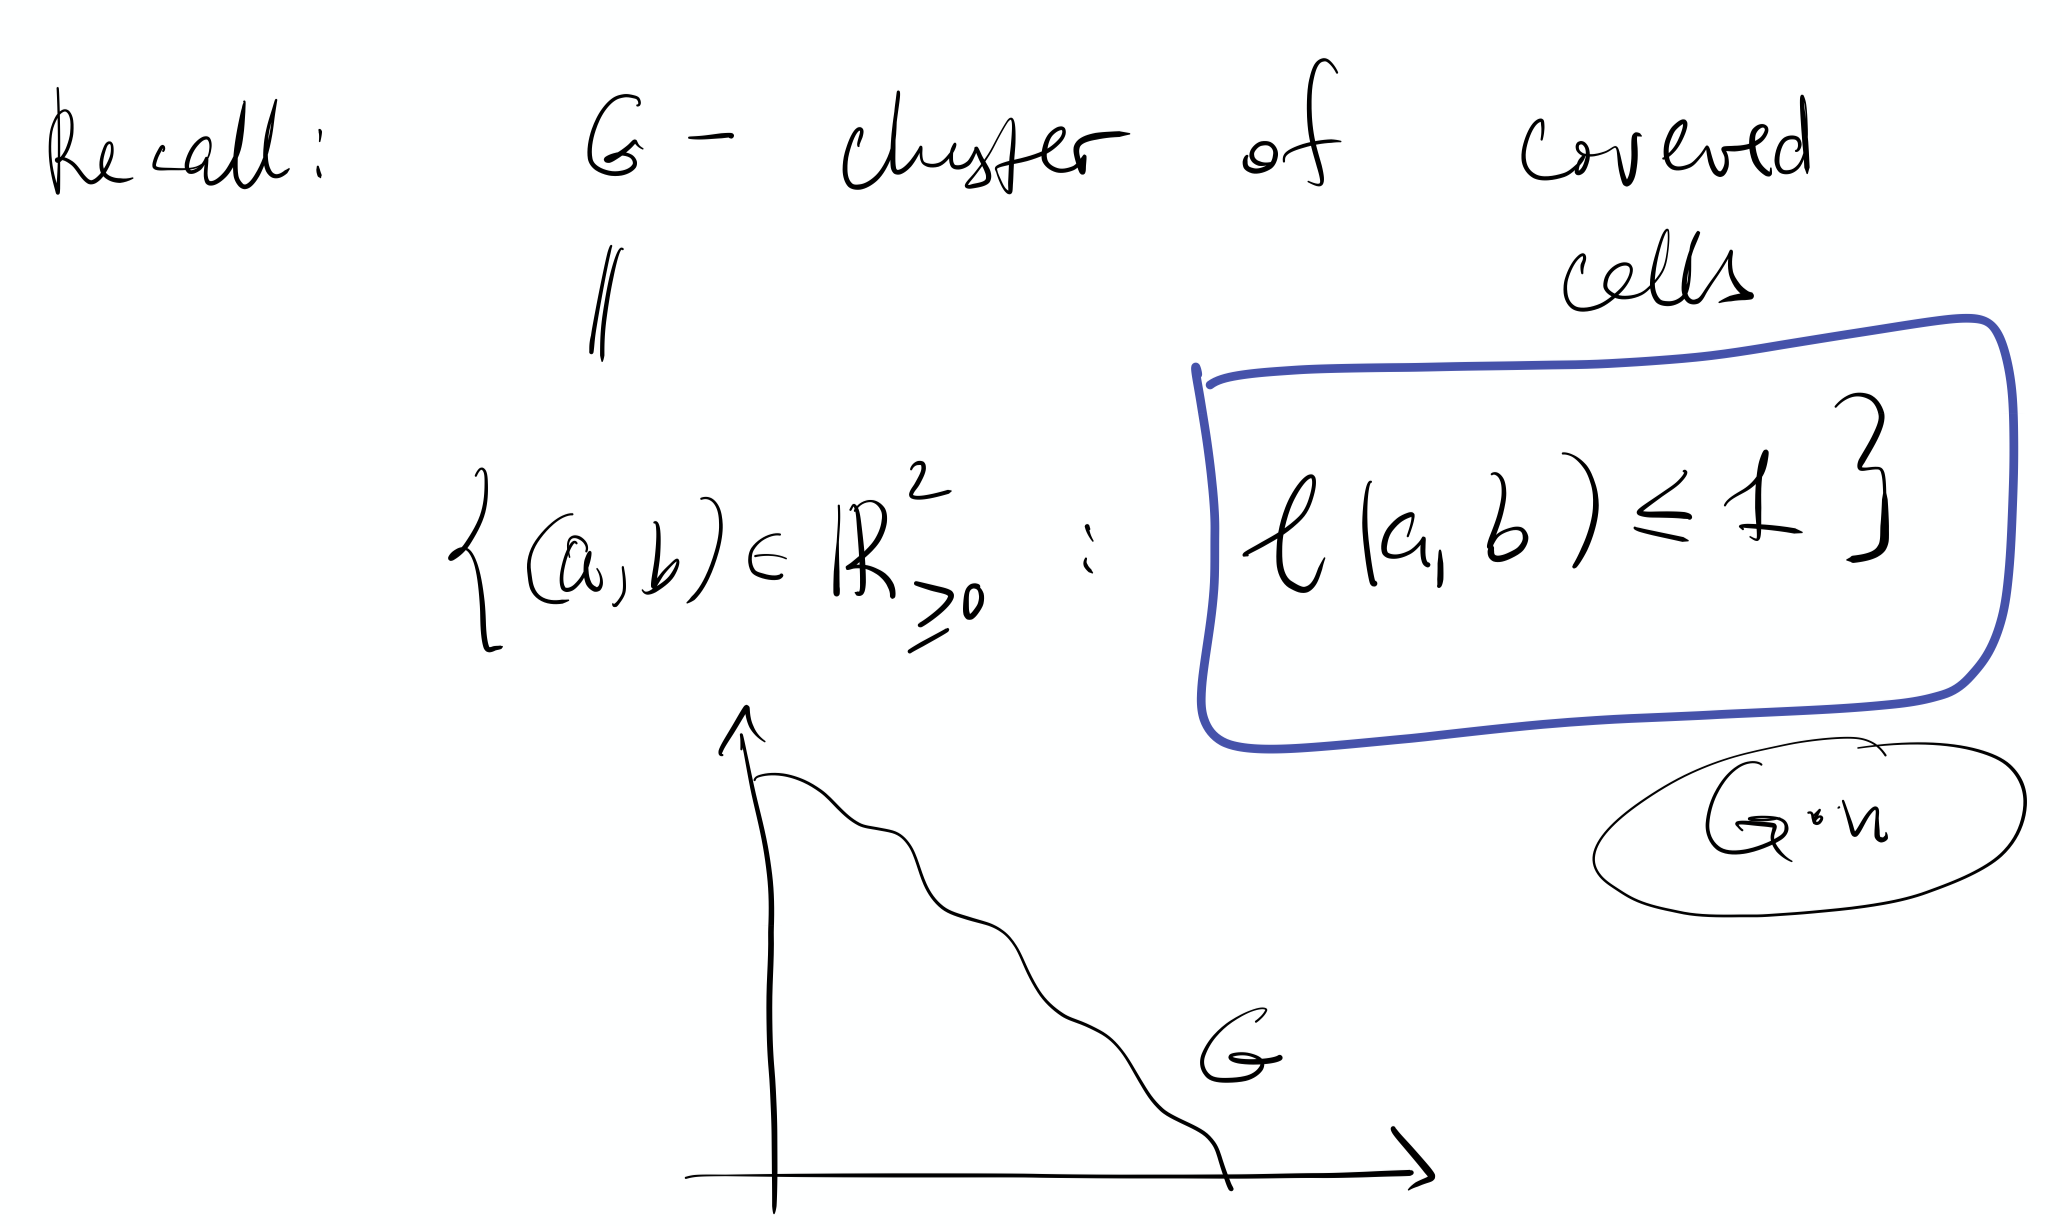 Recall: G - cluster of covered
cells
||
{(a,b) ∈ ℝ²≥0 : ℓ(a,b) ≤ 1}
G·n
G